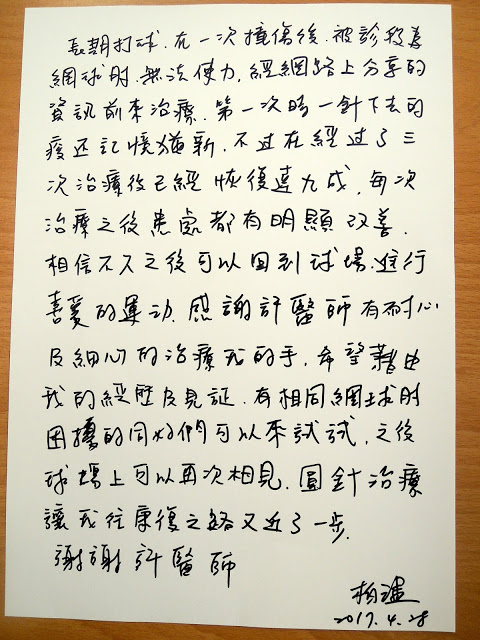 長期打球.在一次撞傷後.被診斷為
網球肘.無法使力.經網路上分享的
資訊前來治療.第一次時一針下去的
痠还記憶猶新.不过在經过了三
次治療後已經恢復達九成.每次
治療之後患處都有明顯改善.
相信不久之後可以回到球場.進行
喜愛的運动.感謝許醫師有耐心
及細心的治療我的手.希望藉由
我的經歷及見証.有相同網球肘
困擾的同好們可以來試試.之後
球場上可以再次相見.圓針治療
讓我往康復之路又近了一步.
謝謝許醫師
柏
2017.4.28